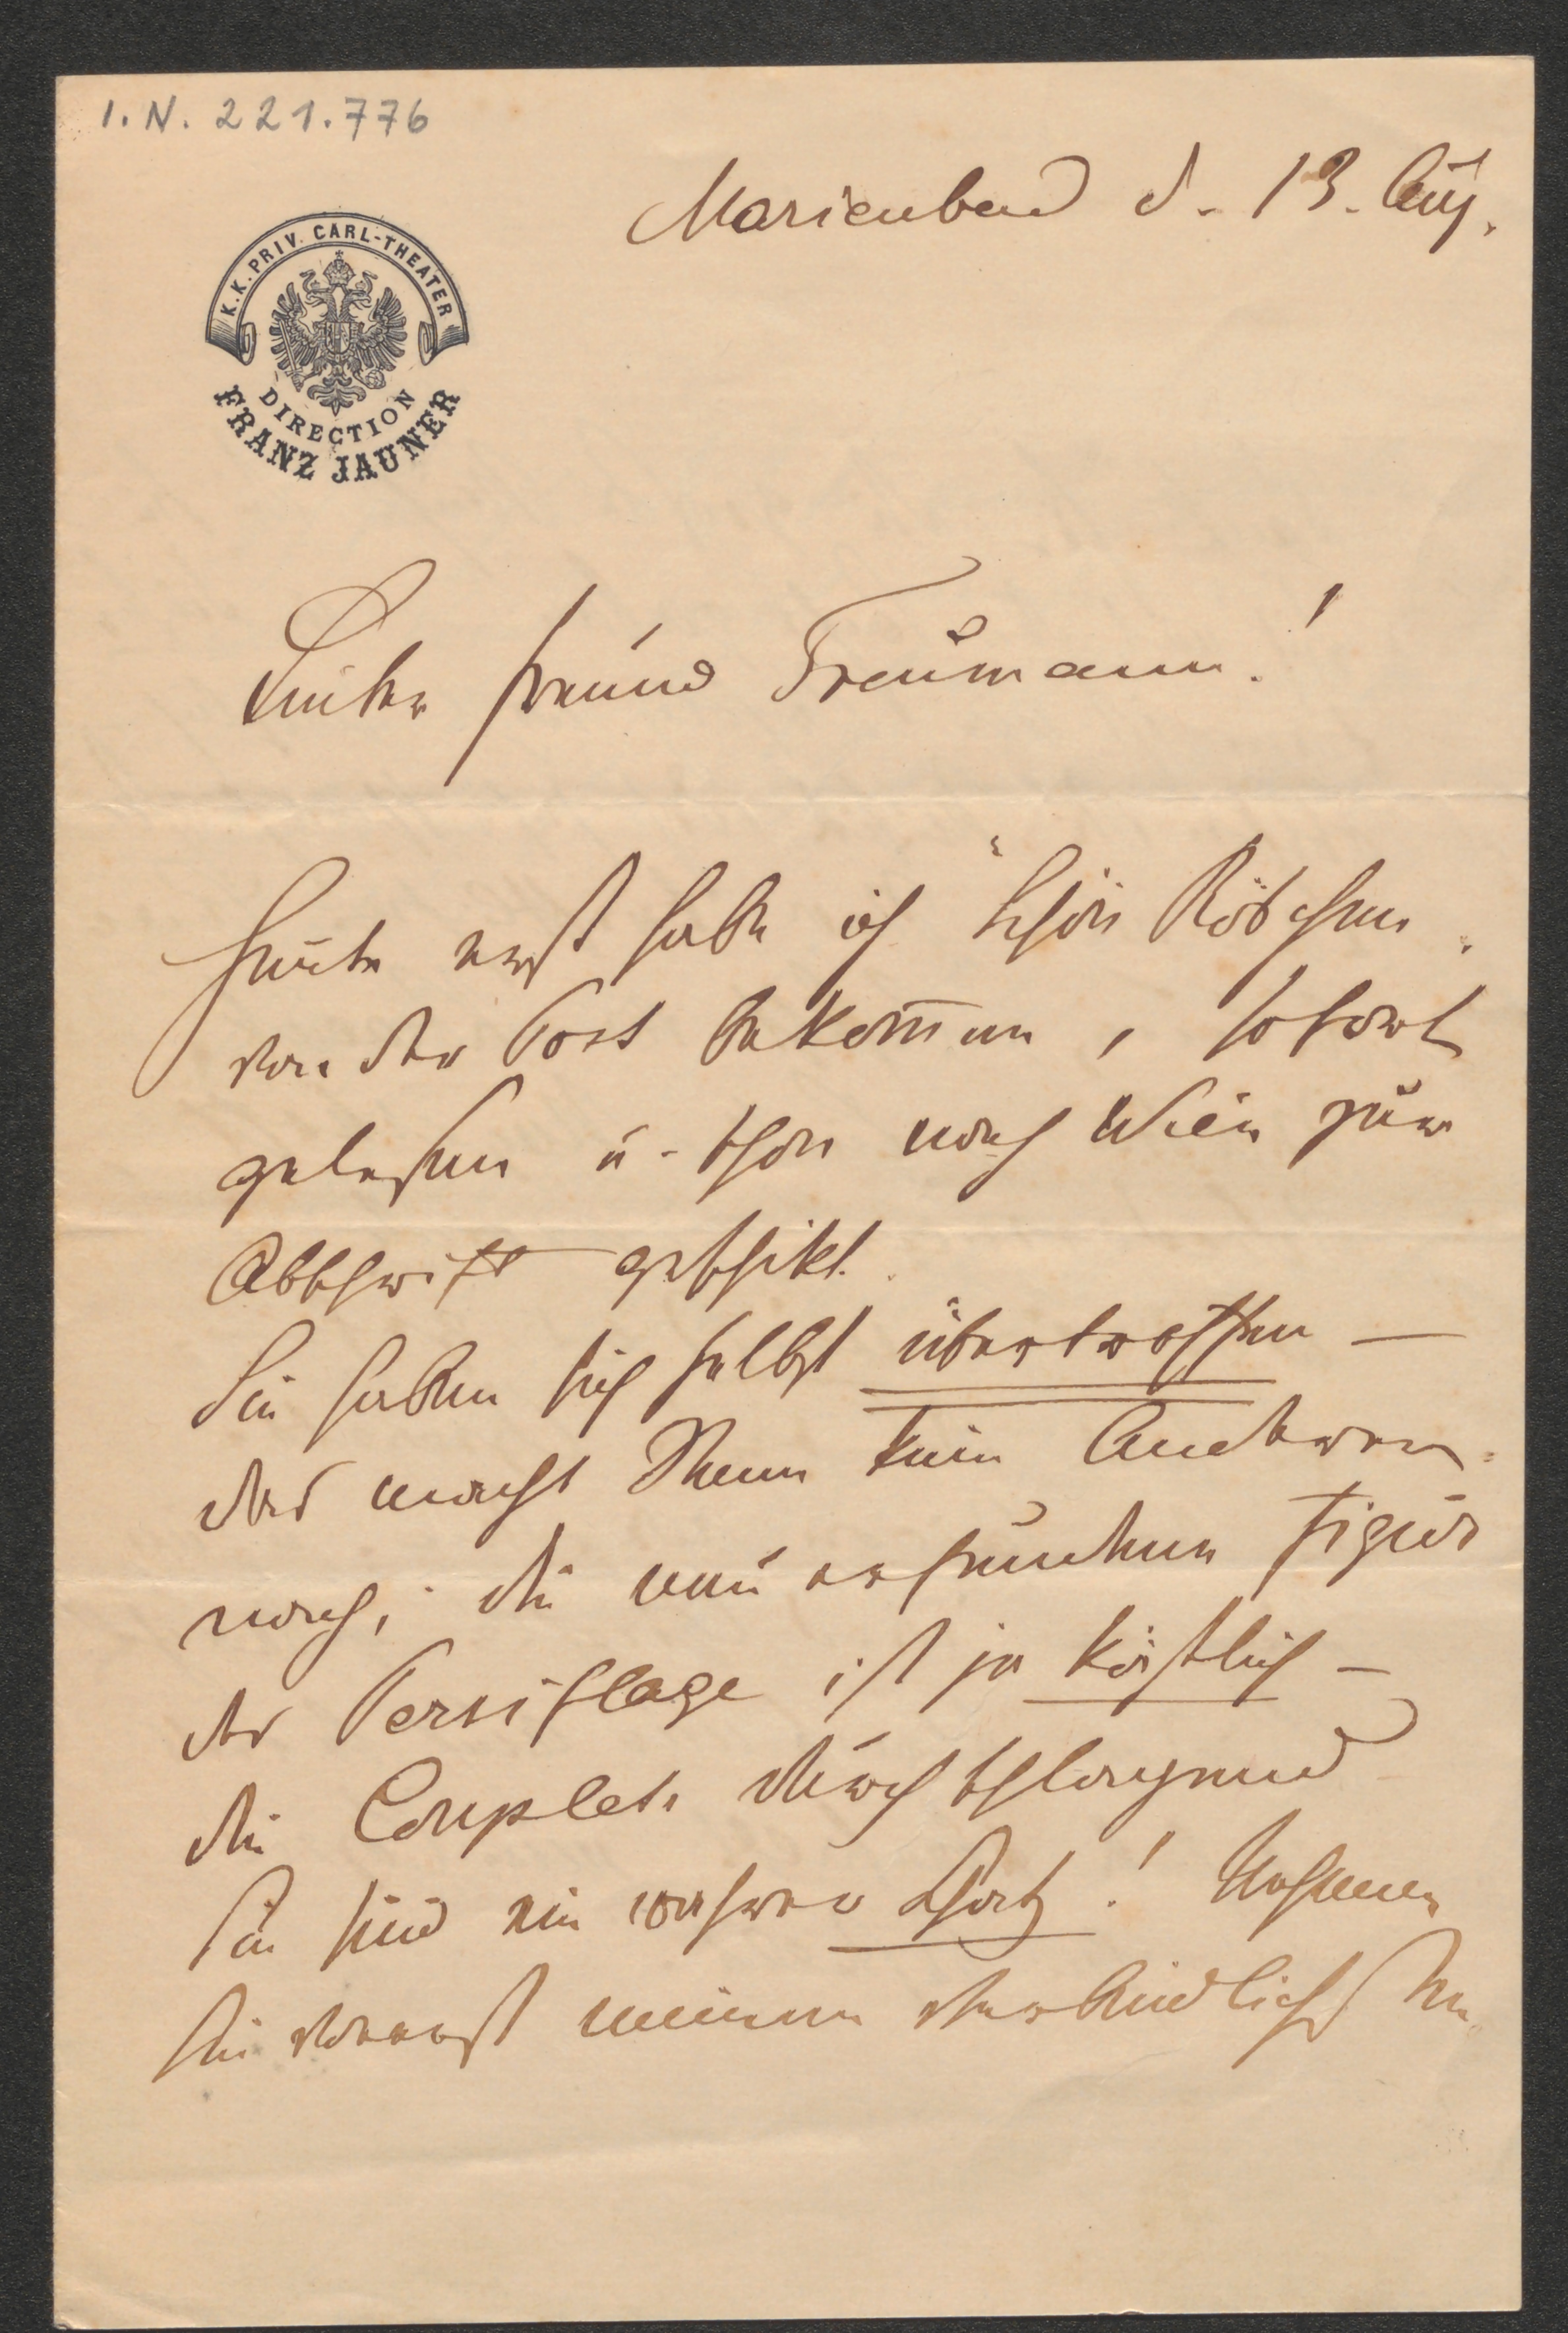 I. N. 221.776
Marienbad d. 13. Aug.
K. K. PRIV. CARL-THEATER
DIRECTION
FRANZ JAUNER
Lieber Freund Treumann!
Heute erst habe ich "Schön Röschen
von der Post bekom̄en, sofort
gelesen u. schon nach Wien zur
Abschrift geschikt.
Sie haben sich selbst übertroffen —
das macht Ihnen kein Anderer
nach, die neu erfundene Figur
der Persiflage ist ja köstlich —
die Couplets durchschlagend
Sie sind ein wahrer Schatz! Nehmen
Sie vorerst meinen verbindlichsten